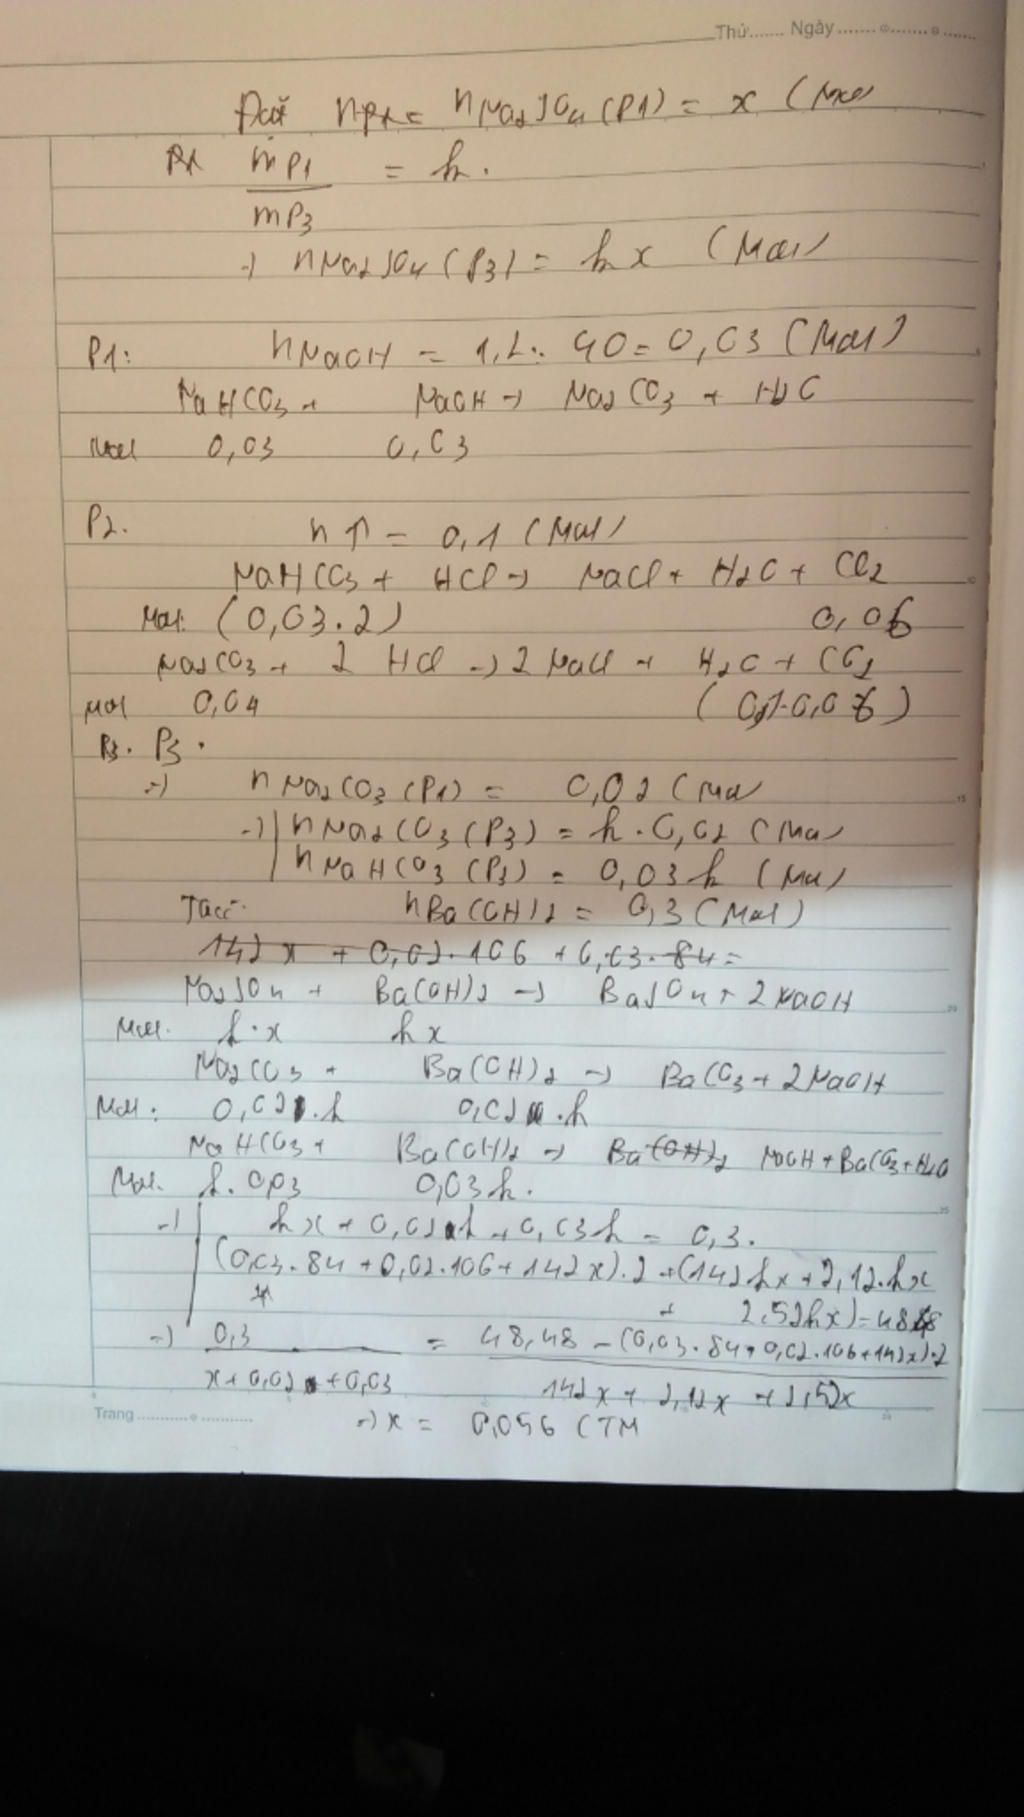 Thứ....... Ngày ....................
Đặt nP1 = nNa2SO4 (P1) = x (Mol)
P1 mP1 / mP3 = k.
-) nNa2SO4 (P3) = k x (Mol)
P1: nNaOH = 1,2 : 40 = 0,03 (Mol)
NaHCO3 + NaOH -) Na2CO3 + H2O
Mol 0,03 0,03
P2. n↑ = 0,1 (Mol)
NaHCO3 + HCl -) NaCl + H2O + CO2
Mol: (0,03.2) 0,06
Na2CO3 + 2 HCl -) 2 NaCl + H2O + CO2
Mol 0,04 (0,1-0,06)
P3. P3.
-) nNa2CO3 (P1) = 0,02 (Mol
-) nNa2CO3 (P3) = k . 0,02 (Mol
nNaHCO3 (P3) = 0,03k (Mol)
Ta có: nBa(OH)2 = 0,3 (Mol)
142 x + 0,02.106 + 0,03.84 =
Na2SO4 + Ba(OH)2 -) BaSO4 + 2NaOH
Mol. k.x kx
Na2CO3 + Ba(OH)2 -) BaCO3 + 2NaOH
Mol: 0,02.k 0,02.k
NaHCO3 + Ba(OH)2 -) Ba(OH)2 NaOH + BaCO3 + H2O
Mol. k.0,03 0,03k.
-) kx + 0,02k + 0,03k = 0,3.
(0,03.84 + 0,02.106 + 142x).2 + (142kx + 2,12.kx
+ 2,52kx) = 48,48
-) 0,3 / x + 0,02 + 0,03 = 48,48 - (0,03.84 + 0,02.106 + 142x).2 / 142x + 2,12x + 2,52x
Trang ....................
-) x = 0,056 (TM